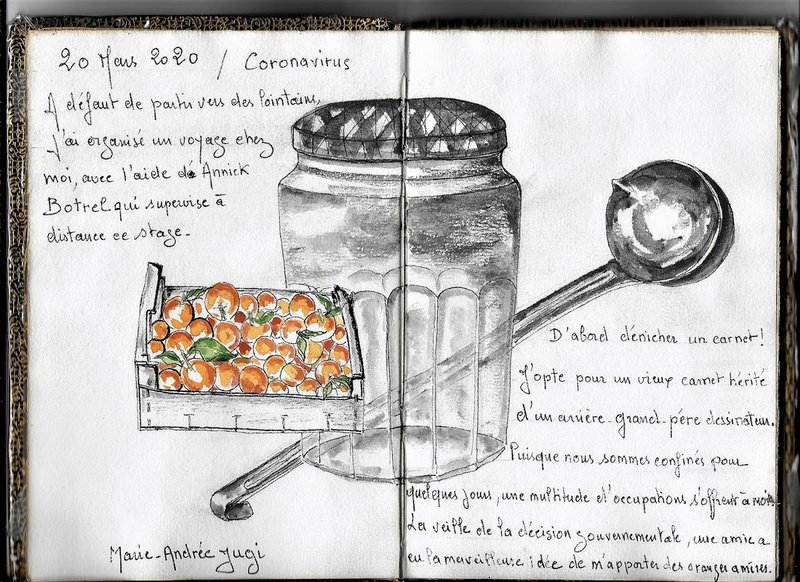 20 Mars 2020 / Coronavirus
A défaut de partir vers des lointains,
j'ai organisé un voyage chez
moi, avec l'aide de Annick
Botrel qui supervise à
distance ce stage.
D'abord dénicher un carnet !
J'opte pour un vieux carnet hérité
d'un arrière-grand-père dessinateur.
Puisque nous sommes confinés pour
quelques jours, une multitude d'occupations s'offrent à moi.
La veille de la décision gouvernementale, une amie a
eu la merveilleuse idée de m'apporter des oranges amères.
Marie-Andrée Jugi